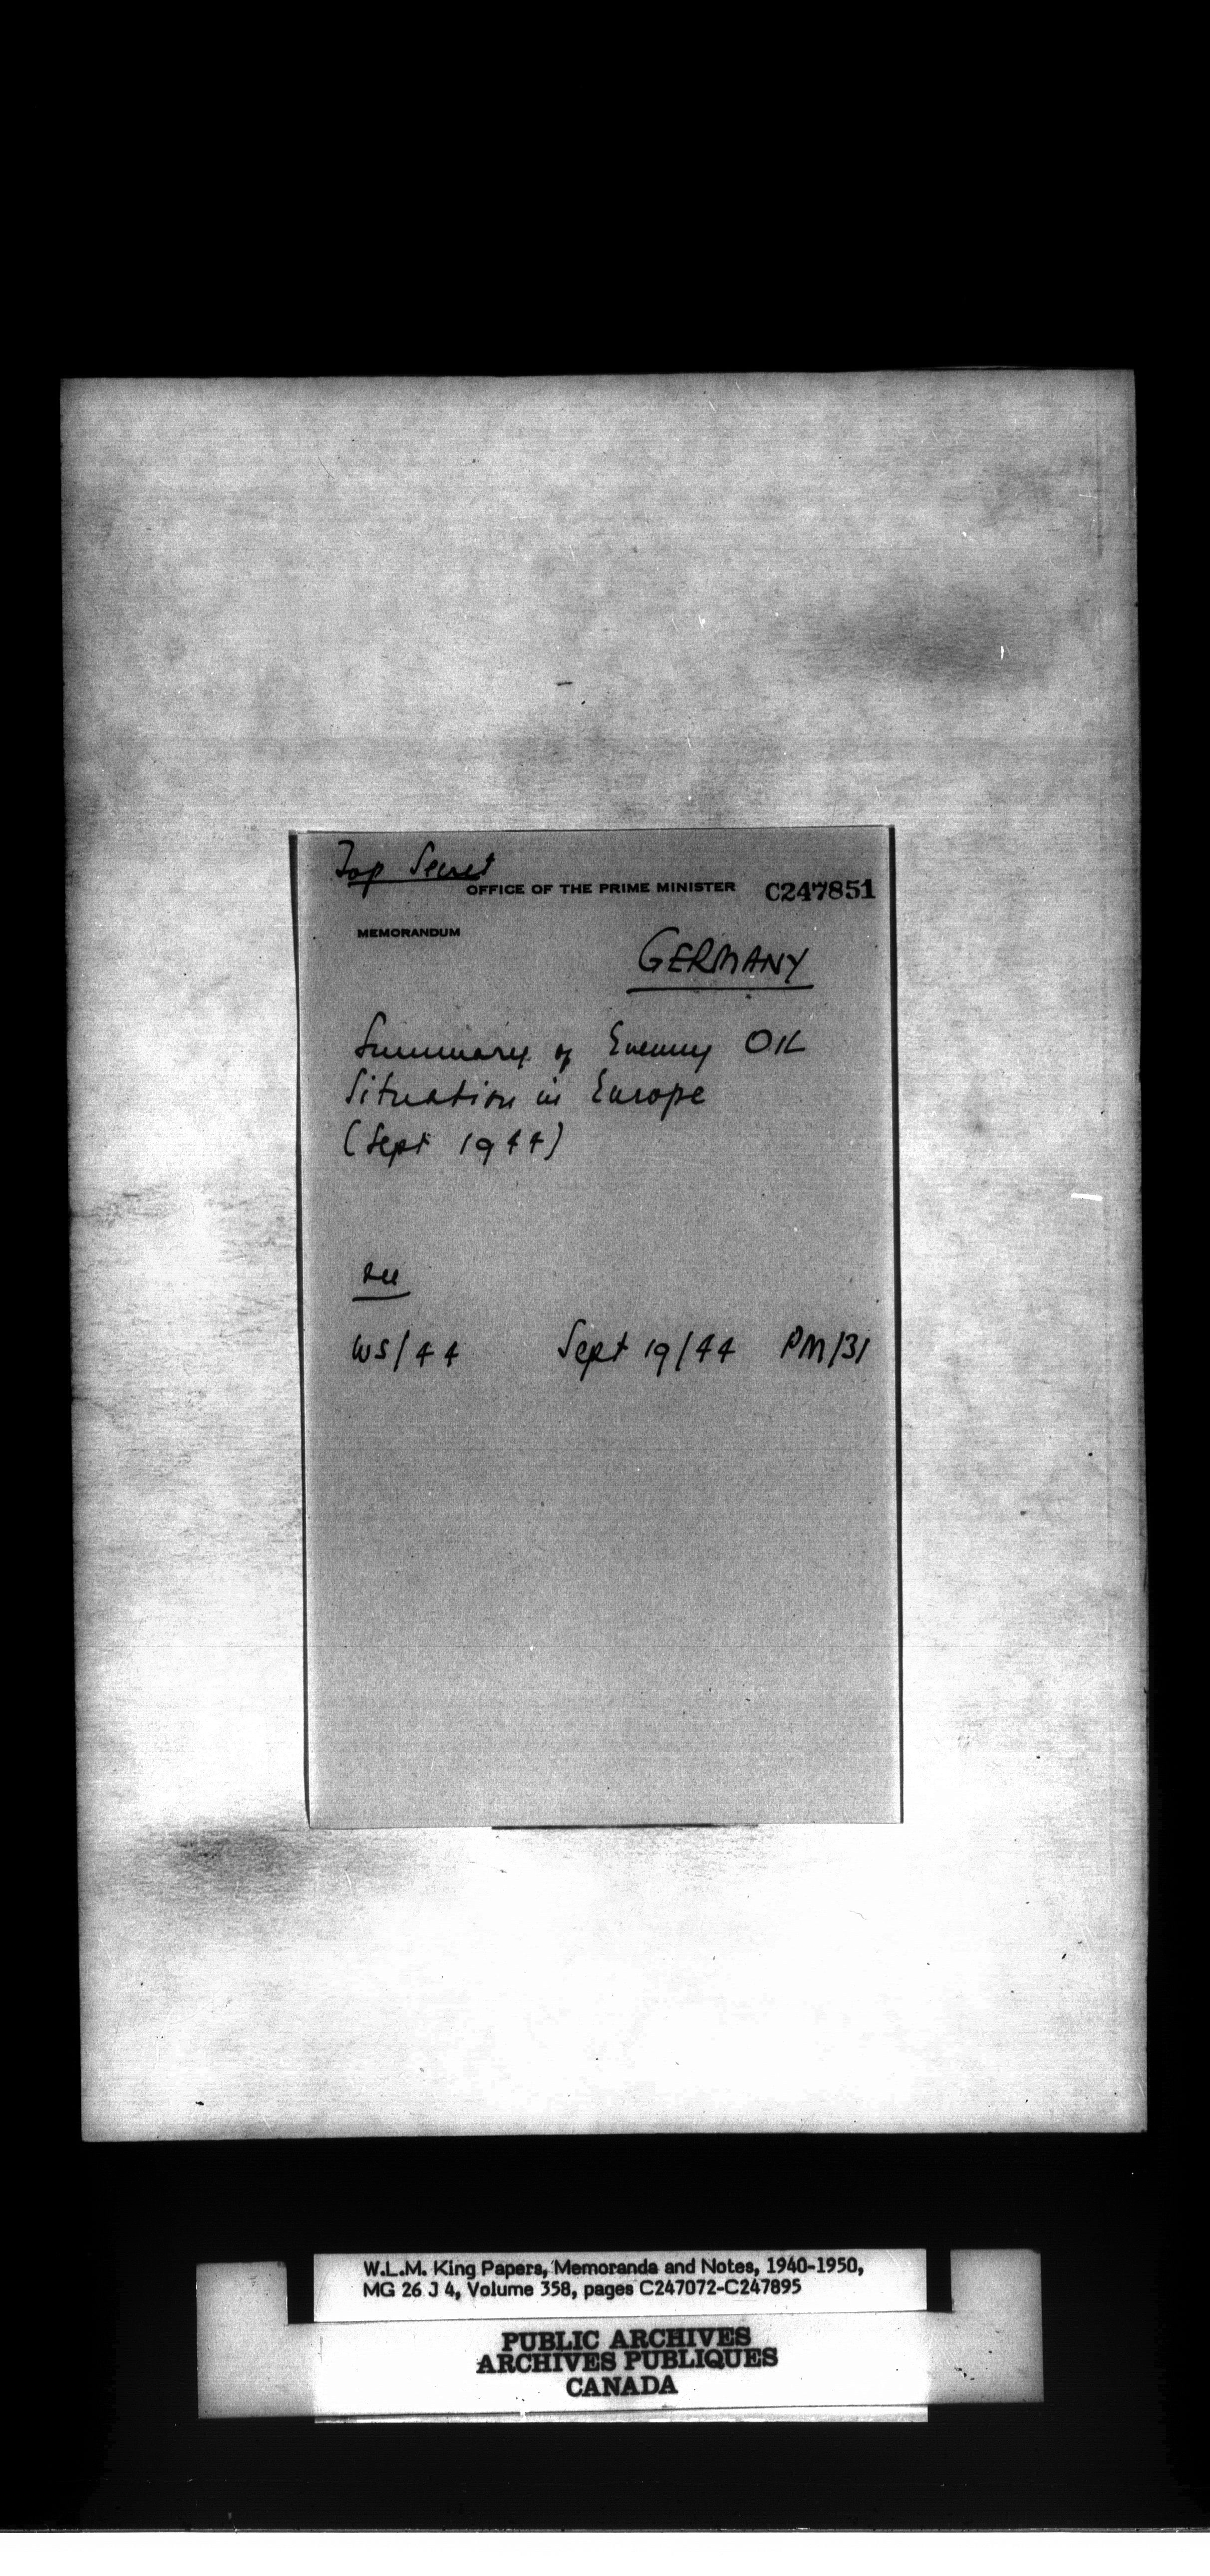 Top Secret
OFFICE OF THE PRIME MINISTER C247851
MEMORANDUM
GERMANY
Summary of Enemy OIL
Situation in Europe
(Sept 1944)
see
WS/44 Sept 19/44 PM/31
W.L.M. King Papers, Memoranda and Notes, 1940-1950,
MG 26 J 4, Volume 358, pages C247072-C247895
PUBLIC ARCHIVES
ARCHIVES PUBLIQUES
CANADA